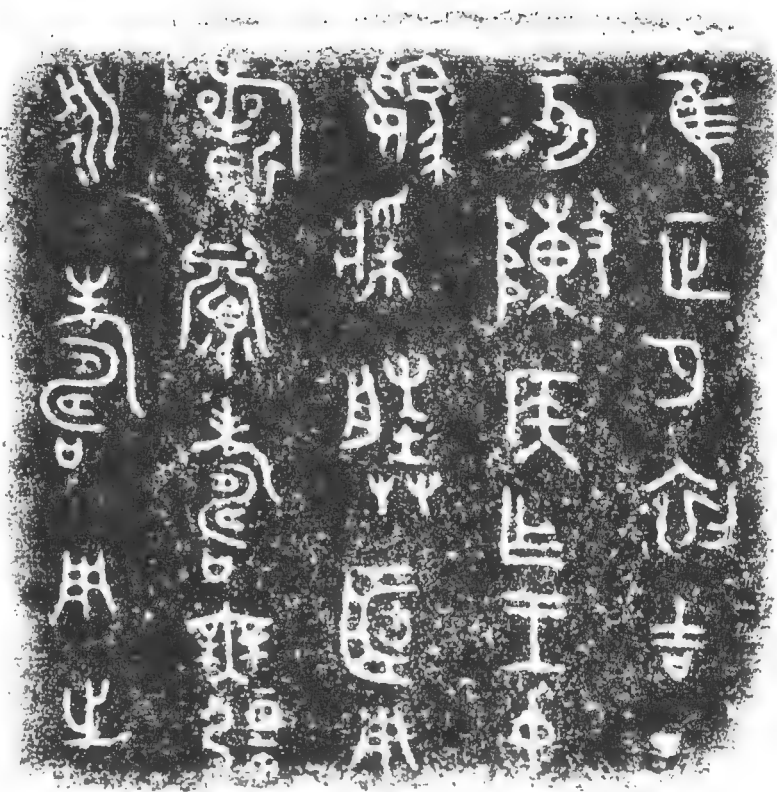 隹正月初吉丁
亥陳侯乍王中
媯媵匡用
眉壽無疆
永壽用之